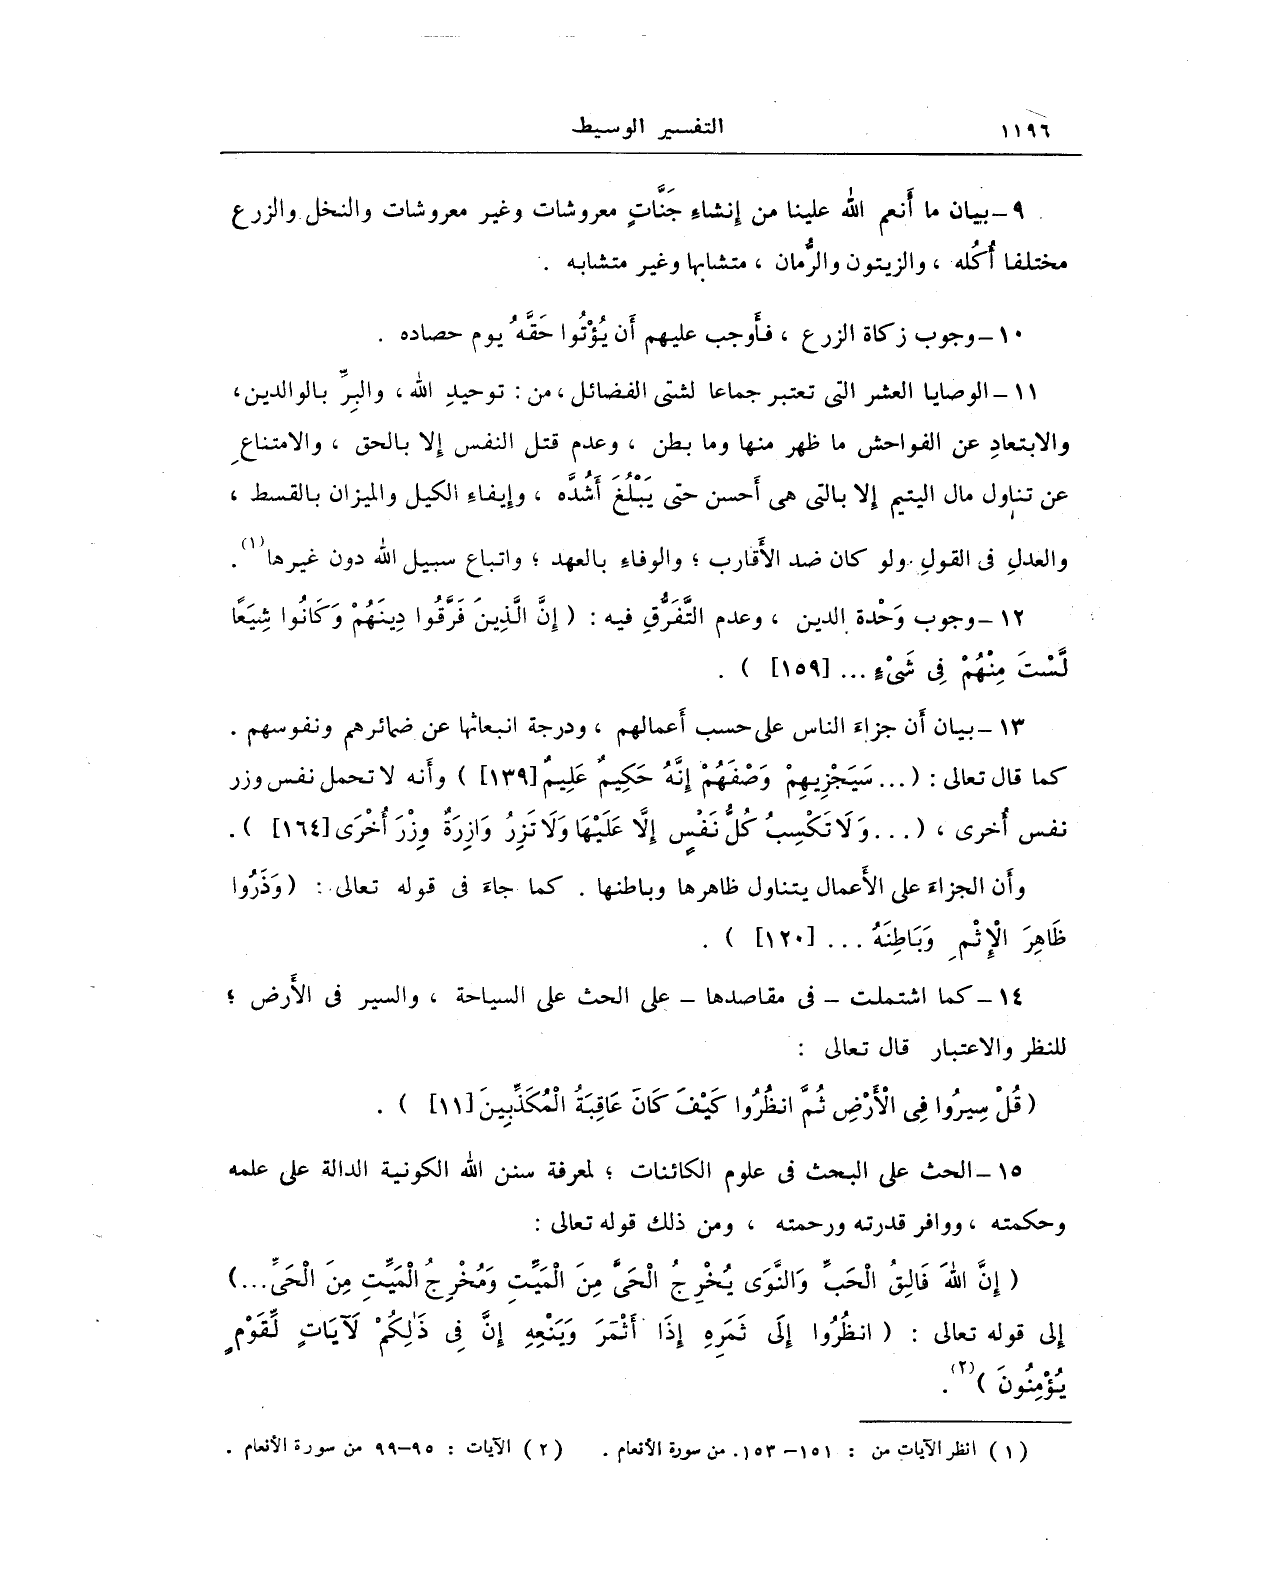 ١١٩٦ التفسير الوسيط
٩ – بيان ما أَنعم الله علينا من إنشاءِ جَنَّاتٍ معروشات وغير معروشات والنخل والزرع
مختلفا أُكُله ، والزيتون والرُّمان ، متشابها وغير متشابه .
١٠ – وجوب زكاة الزرع ، فأَوجب عليهم أَن يُؤْتُوا حَقَّهُ يوم حصاده .
١١ – الوصايا العشر التى تعتبر جماعا لشتى الفضائل ، من : توحيدِ الله ، والبِرِّ بالوالدين ،
والابتعادِ عن الفواحش ما ظهر منها وما بطن ، وعدم قتل النفس إلا بالحق ، والامتناعِ
عن تناول مال اليتيم إلا بالتى هى أَحسن حتى يَبْلُغَ أَشُدَّه ، وإيفاءِ الكيل والميزان بالقسط ،
والعدلِ فى القولِ ولو كان ضد الأَقارب ؛ والوفاءِ بالعهد ؛ واتباع سبيل الله دون غيرها(١).
١٢ – وجوب وَحْدة الدين ، وعدم التَّفَرُّقِ فيه : ( إِنَّ الَّذِينَ فَرَّقُوا دِينَهُمْ وَكَانُوا شِيَعًا
لَّسْتَ مِنْهُمْ فِى شَىْءٍ ... [١٥٩] ) .
١٣ – بيان أَن جزاءَ الناس على حسب أَعمالهم ، ودرجة انبعاثها عن ضمائرهم ونفوسهم .
كما قال تعالى : ( ... سَيَجْزِيهِمْ وَصْفَهُمْ إِنَّهُ حَكِيمٌ عَلِيمٌ [١٣٩] ) وأَنه لا تحمل نفس وزر
نفس أُخرى ، ( ... وَلَا تَكْسِبُ كُلُّ نَفْسٍ إِلَّا عَلَيْهَا وَلَا تَزِرُ وَازِرَةٌ وِزْرَ أُخْرَى [١٦٤] ) .
وأَن الجزاءَ على الأَعمال يتناول ظاهرها وباطنها . كما جاءَ فى قوله تعالى : ( وَذَرُوا
ظَاهِرَ الْإِثْمِ وَبَاطِنَهُ ... [١٢٠] ) .
١٤ – كما اشتملت – فى مقاصدها – على الحث على السياحة ، والسير فى الأَرض ؛
للنظر والاعتبار قال تعالى :
( قُلْ سِيرُوا فِى الْأَرْضِ ثُمَّ انظُرُوا كَيْفَ كَانَ عَاقِبَةُ الْمُكَذِّبِينَ [١١] ) .
١٥ – الحث على البحث فى علوم الكائنات ؛ لمعرفة سنن الله الكونية الدالة على علمه
وحكمته ، ووافر قدرته ورحمته ، ومن ذلك قوله تعالى :
( إِنَّ اللهَ فَالِقُ الْحَبِّ وَالنَّوَى يُخْرِجُ الْحَىَّ مِنَ الْمَيِّتِ وَمُخْرِجُ الْمَيِّتِ مِنَ الْحَىِّ ... )
إلى قوله تعالى : ( انظُرُوا إِلَى ثَمَرِهِ إِذَا أَثْمَرَ وَيَنْعِهِ إِنَّ فِى ذَٰلِكُمْ لَآيَاتٍ لِّقَوْمٍ
يُؤْمِنُونَ )(٢).
( ١ ) انظر الآيات من : ١٥١ – ١٥٣. من سورة الأنعام . ( ٢ ) الآيات : ٩٥ – ٩٩ من سورة الأنعام .